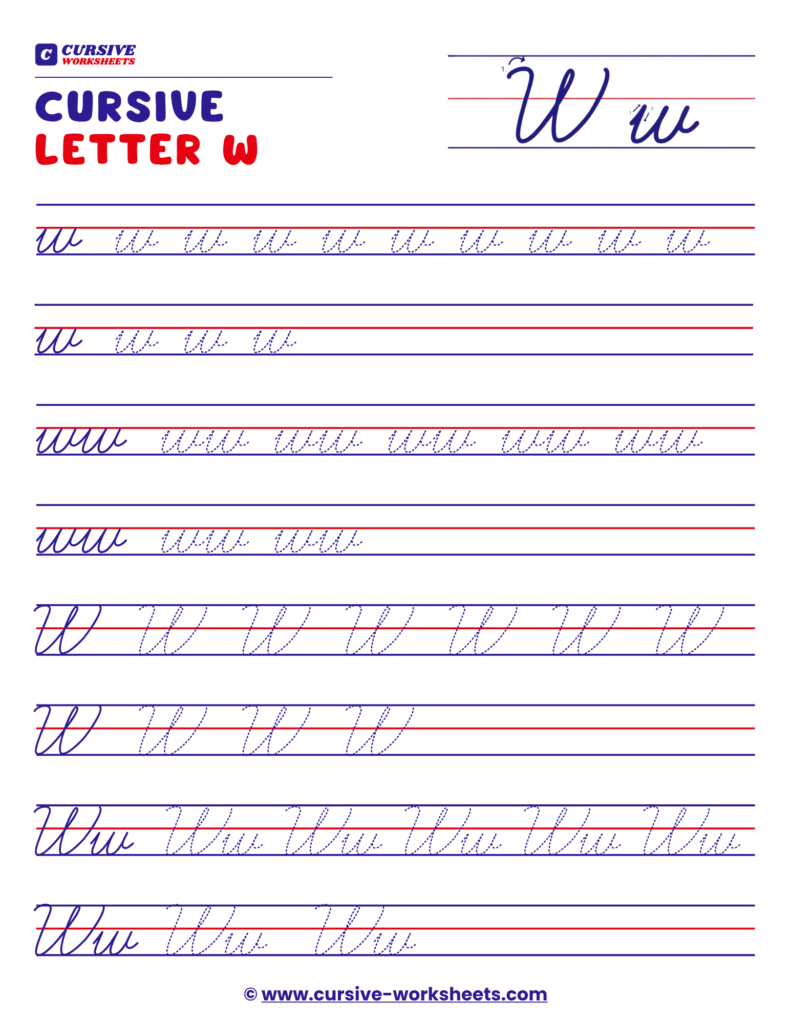 C CURSIVE
WORKSHEETS
CURSIVE
LETTER W
1 W w
w w w w w w w w w w
w w w w
ww ww ww ww ww ww
ww ww ww
W W W W W W W
W W W W
Ww Ww Ww Ww Ww Ww
Ww Ww Ww
© www.cursive-worksheets.com